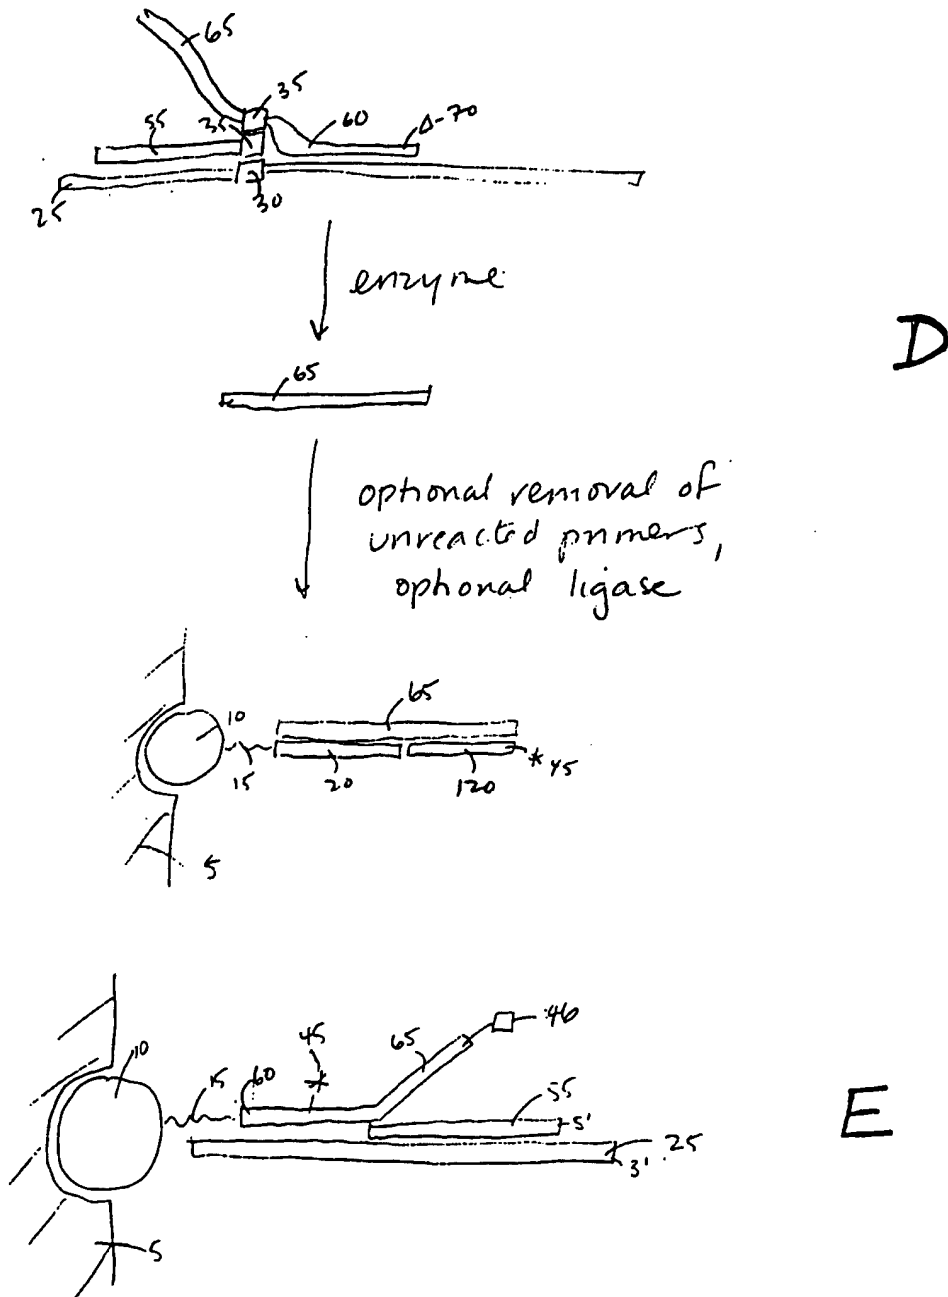 65
35
55
35
60
Δ-70
25
30
enzyme
D
65
optional removal of
unreacted primers,
optional ligase
65
10
15
20
120
* 45
5
46
45
65
10
60
15
55
5'
E
25
3'
5